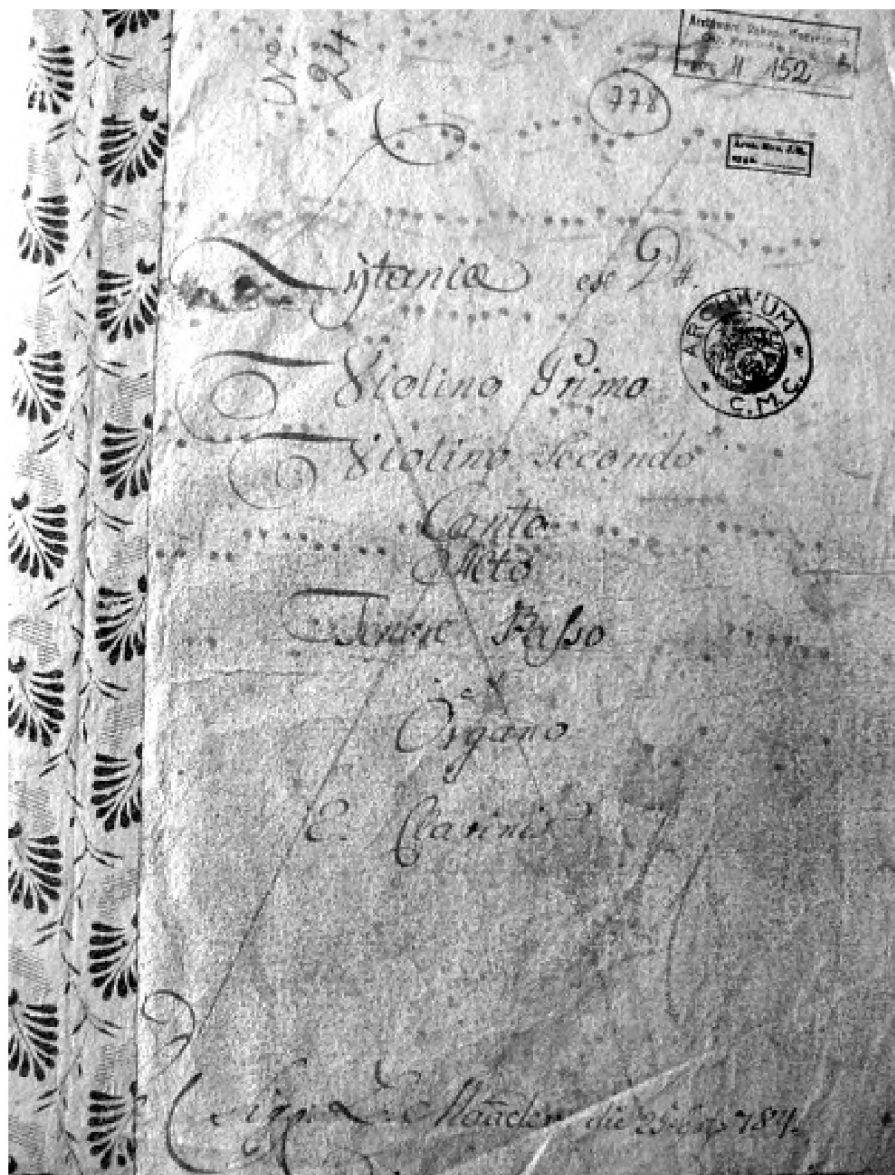 No
24
II 152
778
Lytaniæ ex D#.
ARCHIVUM
C.M.C.
Violino Primo
Violino Secondo
Canto
Alto
Tenore Basso
Organo
2. Clarinis
die 784.